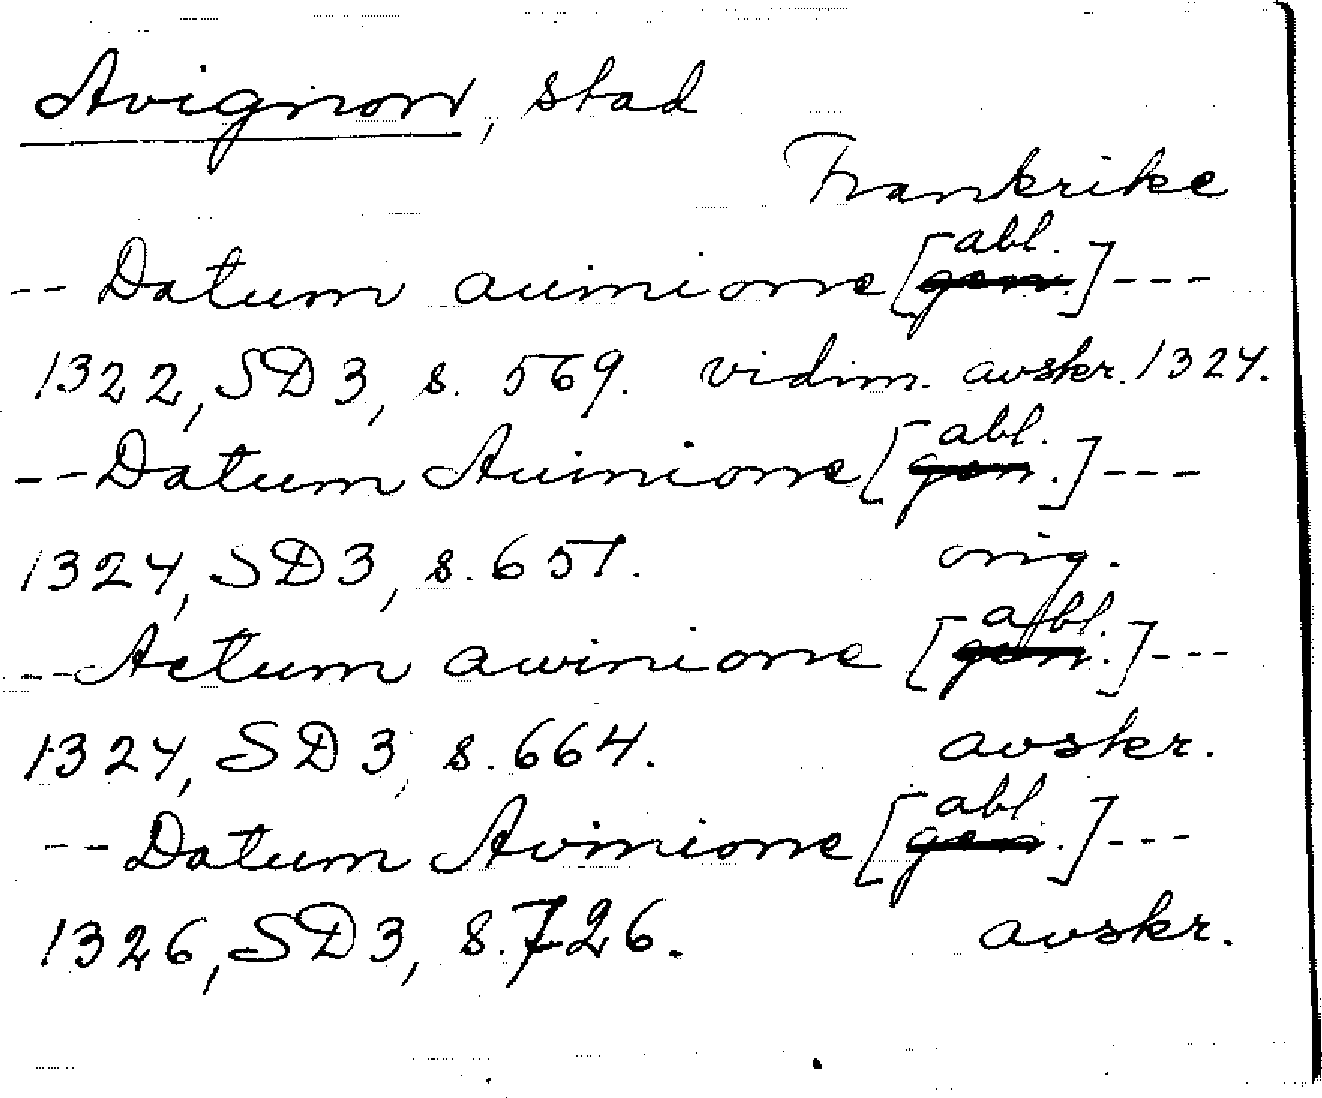 Avignon, stad
Frankrike
-- Datum auinione [abl. gen.] ---
1322, SD3, s. 569. vidim. avskr. 1324.
-- Datum Auinione [abl. gen.] ---
1324, SD3, s. 651. orig.
-- Actum awinione [abl. gen.] ---
1324, SD3, s. 664. avskr.
-- Datum Avinione [abl gen.] ---
1326, SD3, s. 726. avskr.